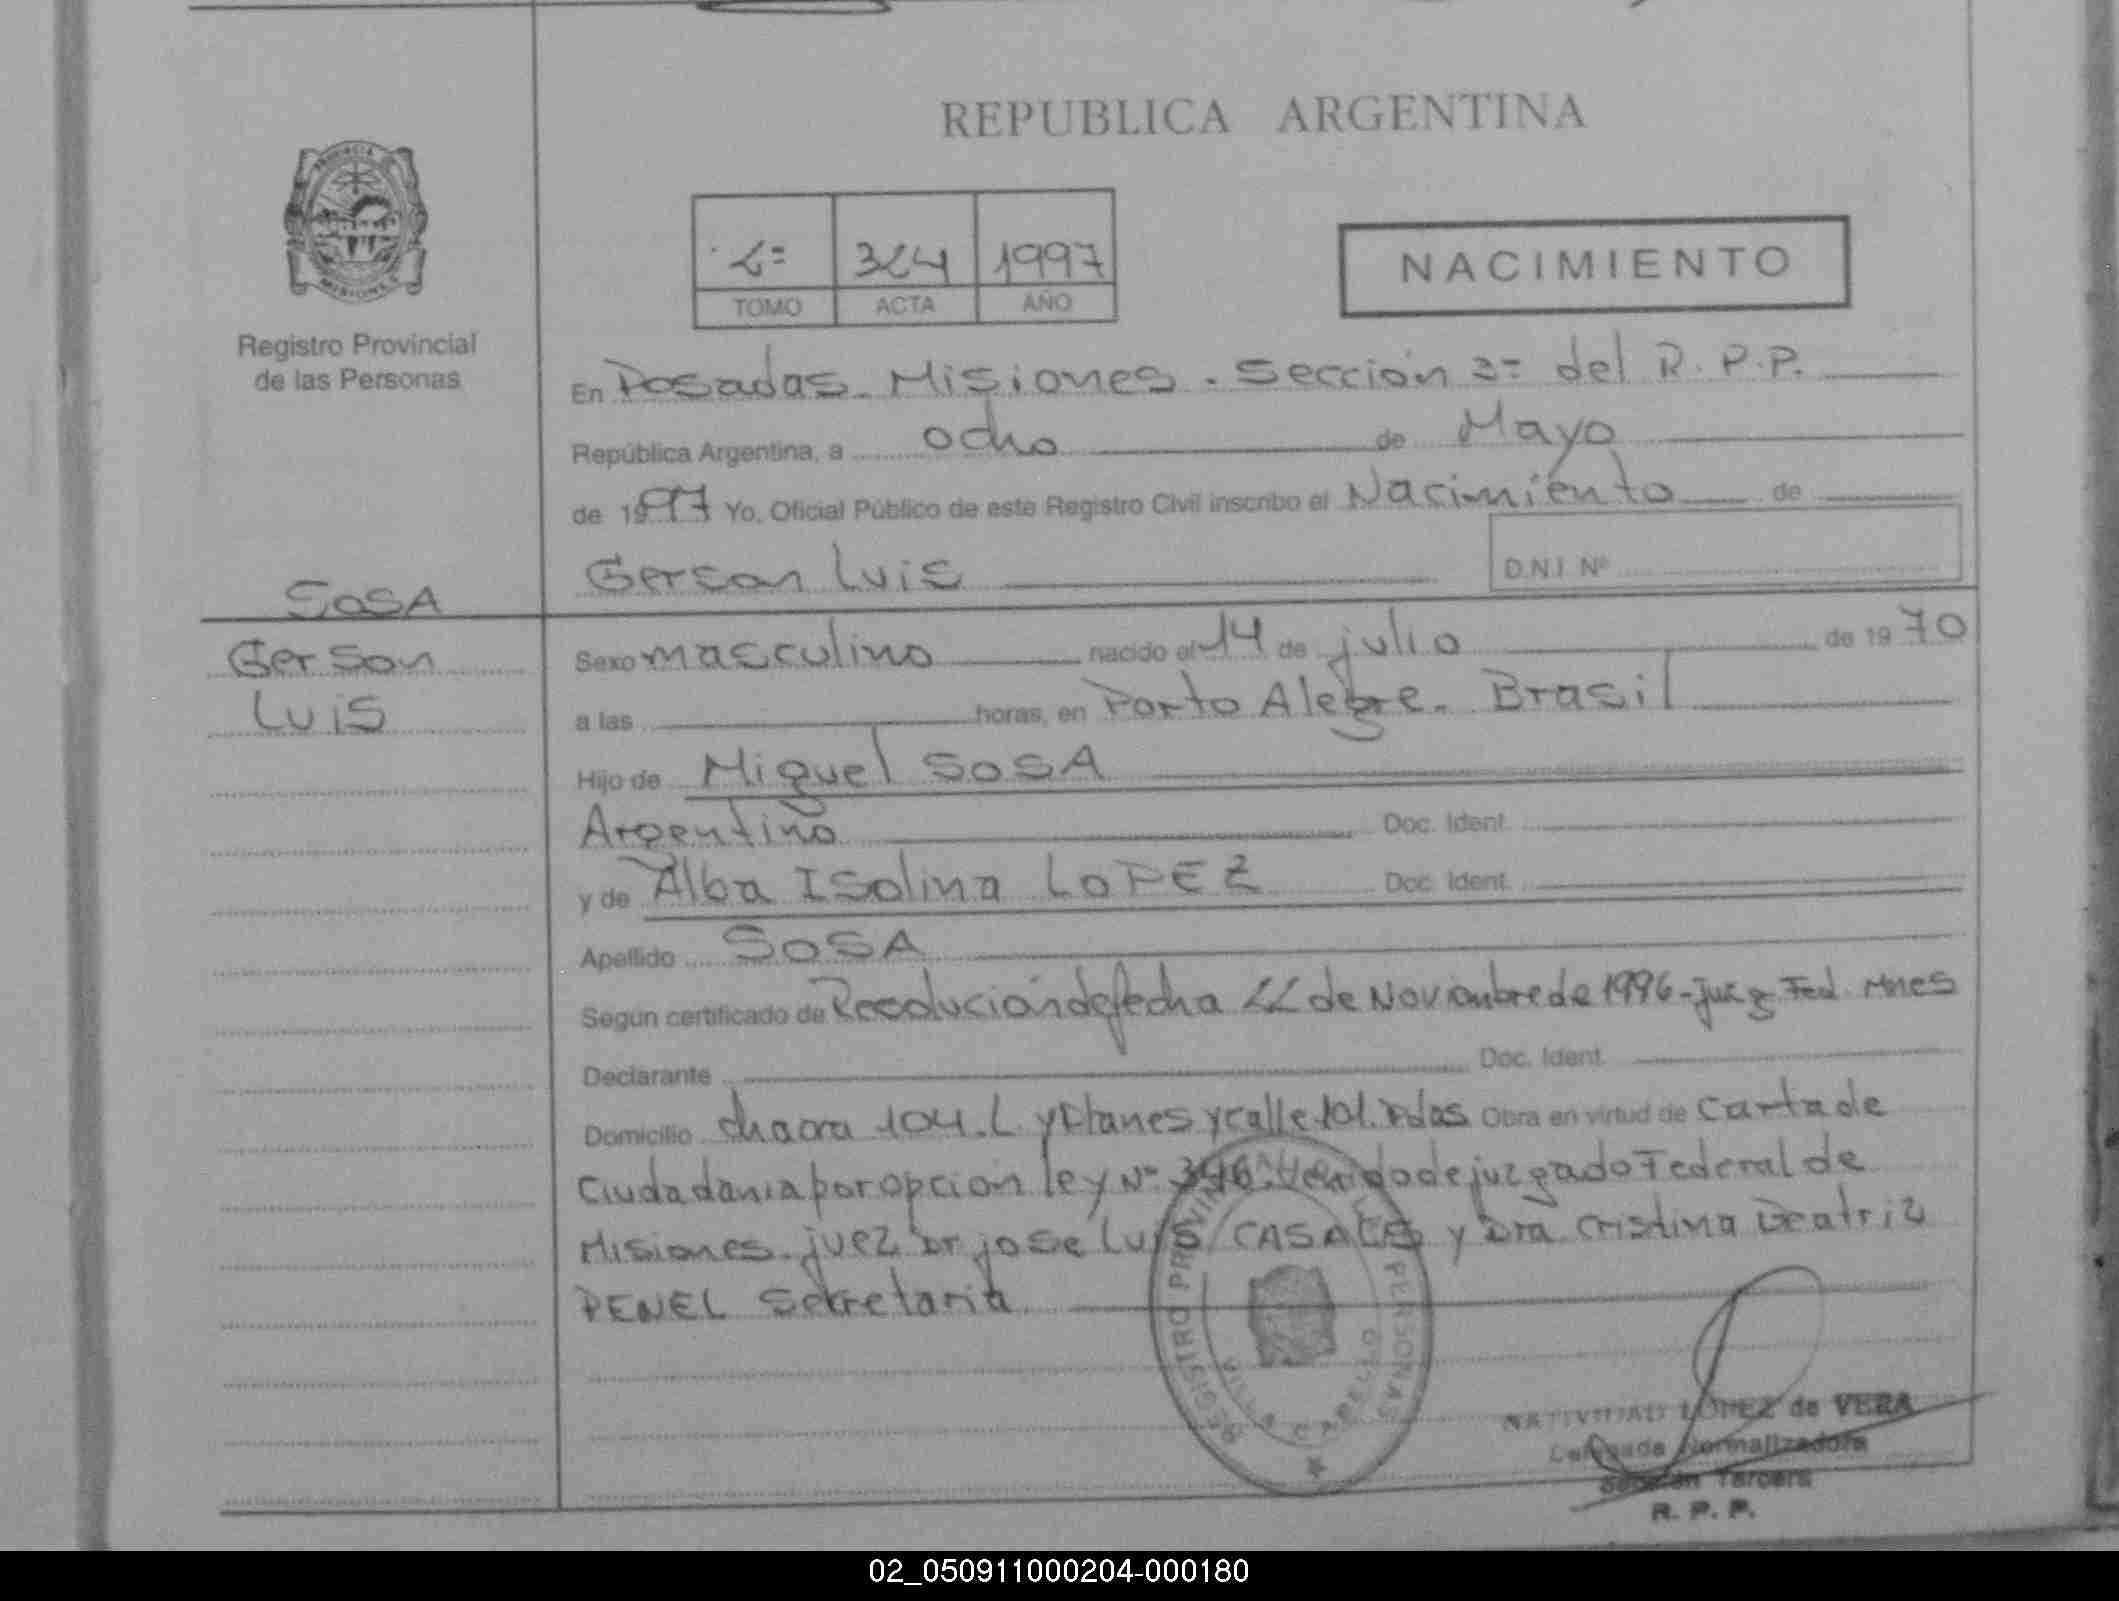 REPUBLICA ARGENTINA
PROVINCIA DE
MISIONES
Registro Provincial
de las Personas
2= 324 1997
TOMO ACTA AÑO
NACIMIENTO
En Posadas - Misiones . Sección 3= del R. P. P.
República Argentina, a ocho de Mayo
de 1997 Yo, Oficial Público de este Registro Civil inscribo el Nacimiento de
Gerson Luis
D.N.I. Nº
SOSA
Gerson
Luis
Sexo masculino nacido el 14 de julio de 1970
a las horas, en Porto Alegre. Brasil
Hijo de Miguel SOSA
Argentino Doc. Ident.
y de Alba Isolina LOPEZ Doc. Ident.
Apellido SOSA
Según certificado de Resolución de fecha 22 de Noviembre de 1996 - juzg. Fed. Mnes
Declarante Doc. Ident.
Domicilio chacra 104. L y Planes y calle 101. Pdas Obra en virtud de Carta de
Ciudadania por opcion ley Nº 346 de juzgado Federal de
Misiones. juez Dr jose Luis CASALES y Dra. Cristina Beatriz
PENEL Secretaria
REGISTRO PROVINCIAL PERSONAS
VILLA CABELLO
NATIVIDAD LOPEZ de VERA
Delegada Normalizadora
Sección Tercera
R. P. P.
02_050911000204-000180